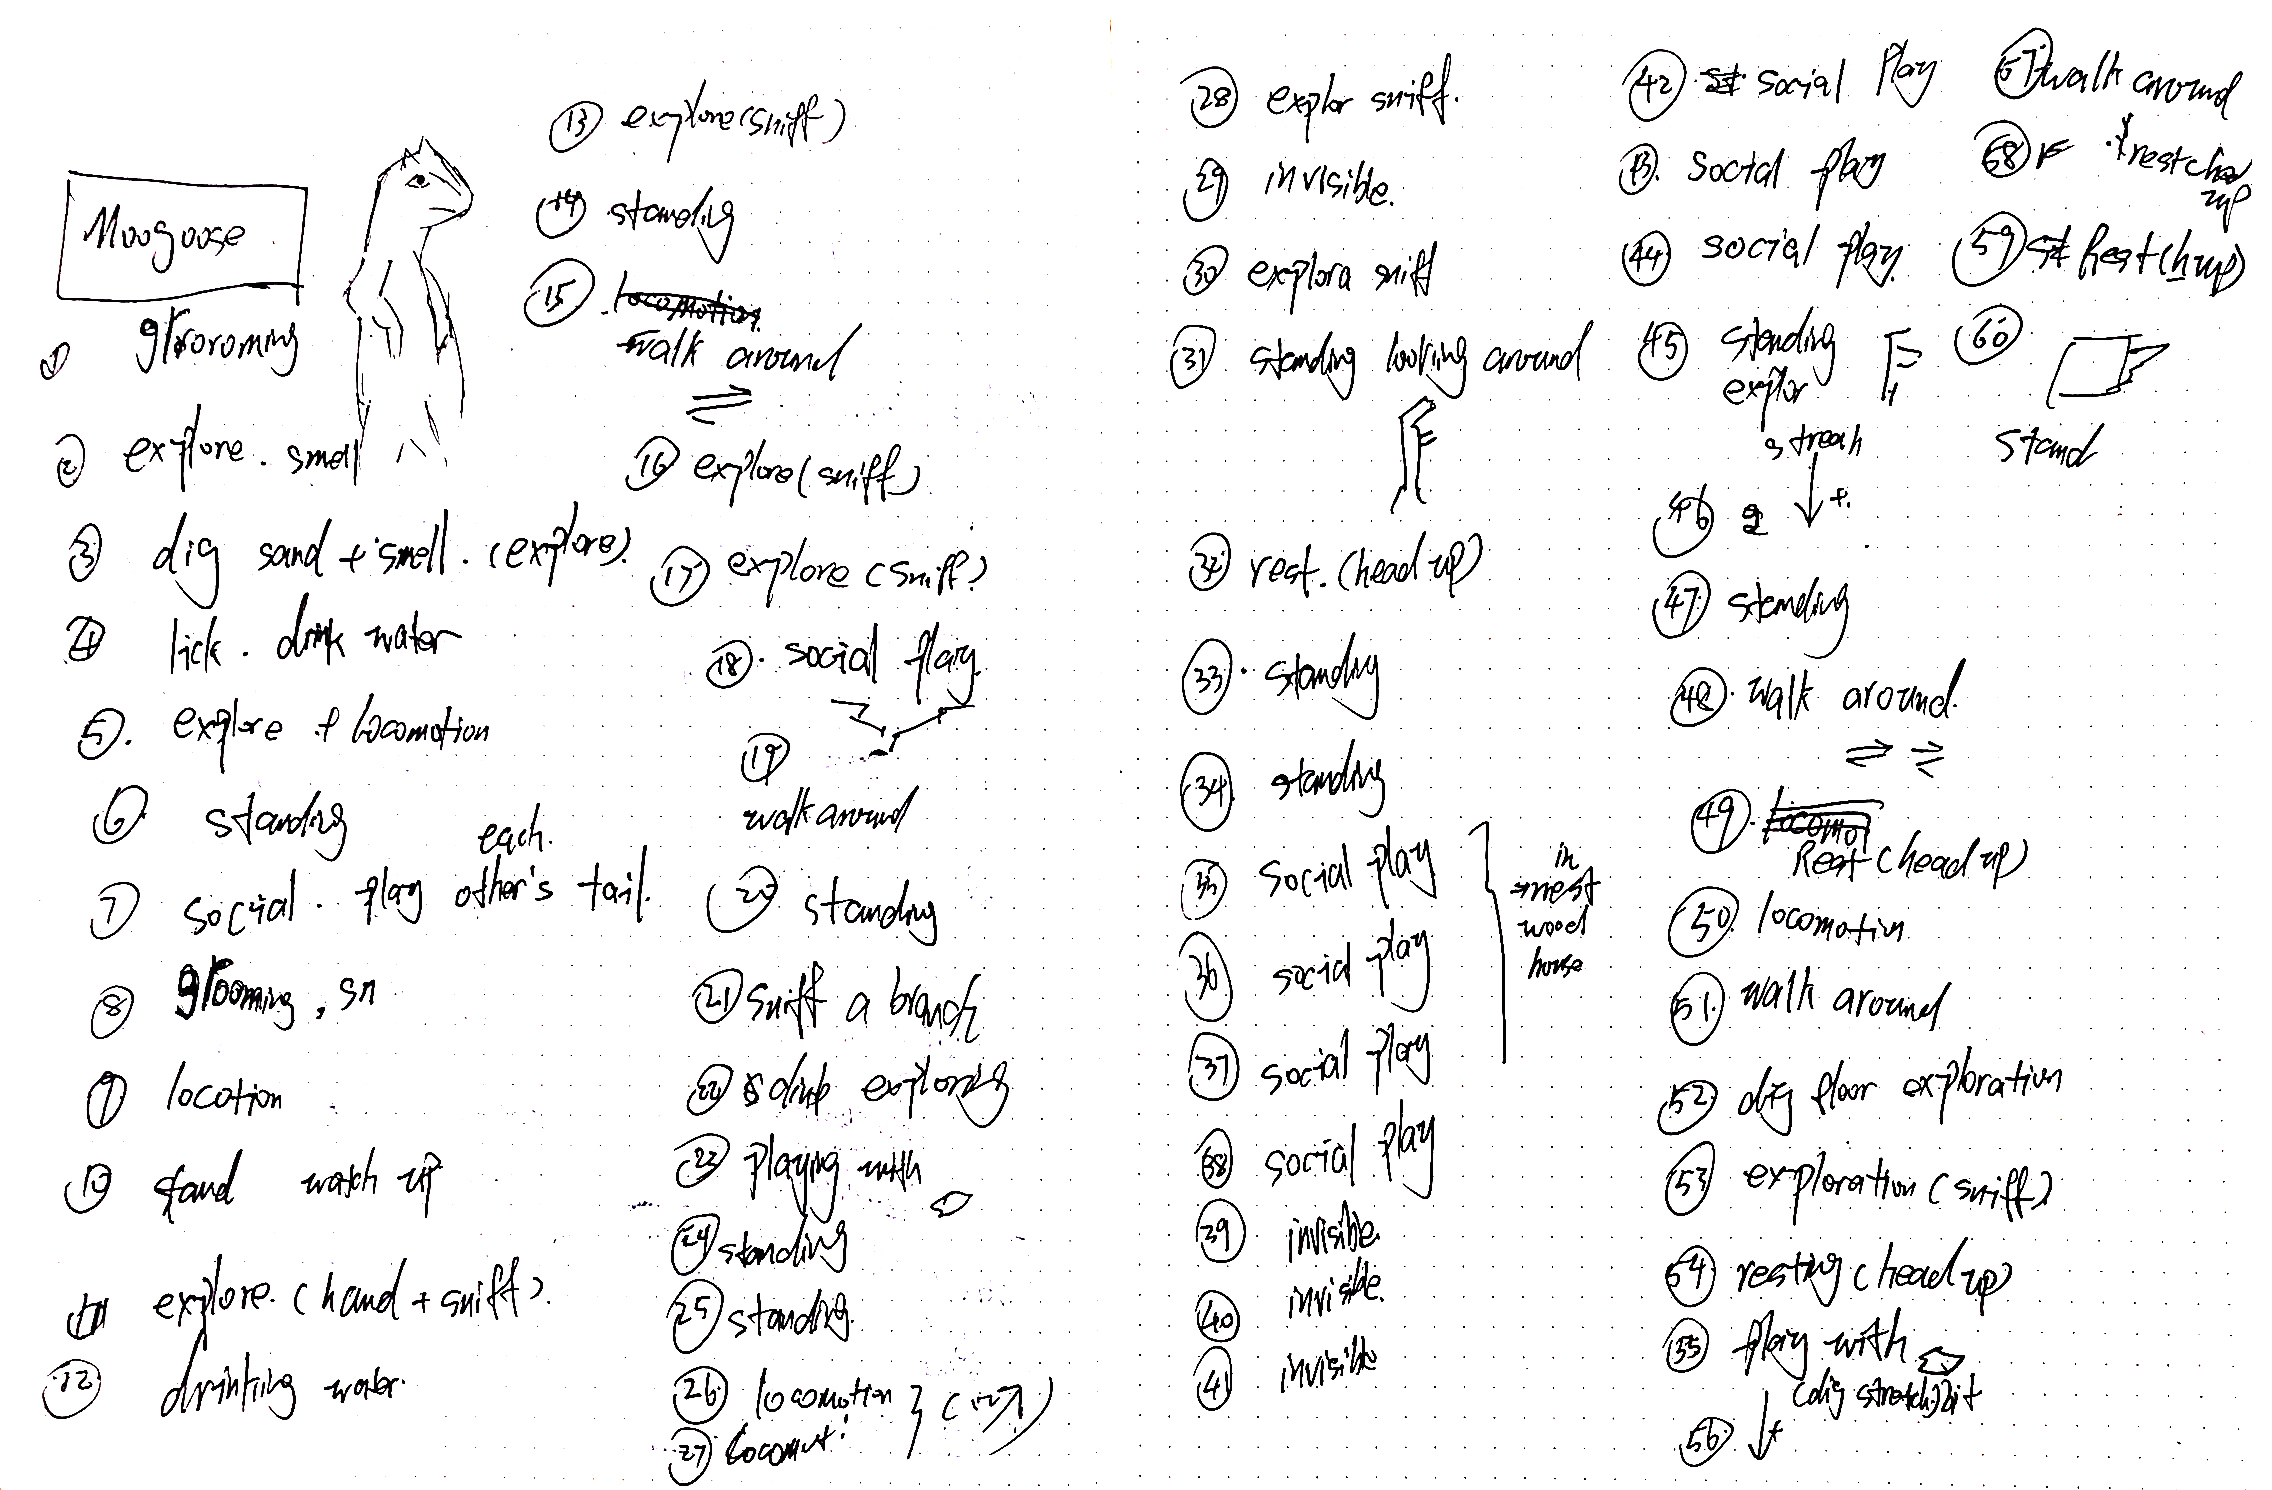 Moogoose
① grooroming
② explore. smell
③ dig sand + smell. (explore).
④ lick. drink water
⑤. explore + locomotion
⑥ standing
each.
⑦ social. play other's tail.
⑧ grooming, sn
⑨ location
⑩ stand watch up
⑪ explore. (hand + sniff).
⑫ drinking water.
⑬ explore (sniff)
⑭ standing
⑮ locomotion
walk around
⇌
⑯ explore (sniff)
⑰ explore (sniff)
⑱. social play.
⑲
walk around
⑳ standing
㉑ sniff a branch
㉒ exploring
㉓ playing with
㉔ standing
㉕ standing
㉖ locomotion
㉗ locomot.
㉘ explor sniff.
㉙ invisible.
㉚ explora sniff
㉛ standing looking around
㉜ rest. (head up)
㉝. standing
㉞ standing
㉟ social play
㊱ social play
㊲ social play
㊳ social play
in
nest
wood
house
㊴ invisible.
㊵ invisible.
㊶ invisible
㊷. st social play
social play
㊹ social play.
㊺ standing
explor
streah
㊻
㊼ standing
㊽. walk around.
⇌ ⇌
㊾. locomot
Rest (head up)
㊿ locomotion
51. walk around
52 dig floor exploration
53 exploration (sniff)
54 resting (head up)
play with
(dig stretch) bit
56.
57 walk around
58
59 st Rest (h up)
60
stand